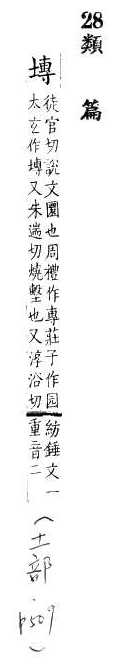 28 類篇
塼
徒官切說文圜也周禮作專莊子作园紡錘文一
太玄作塼又朱遄切燒墼也又淳沿切重音二
(土部. p509)